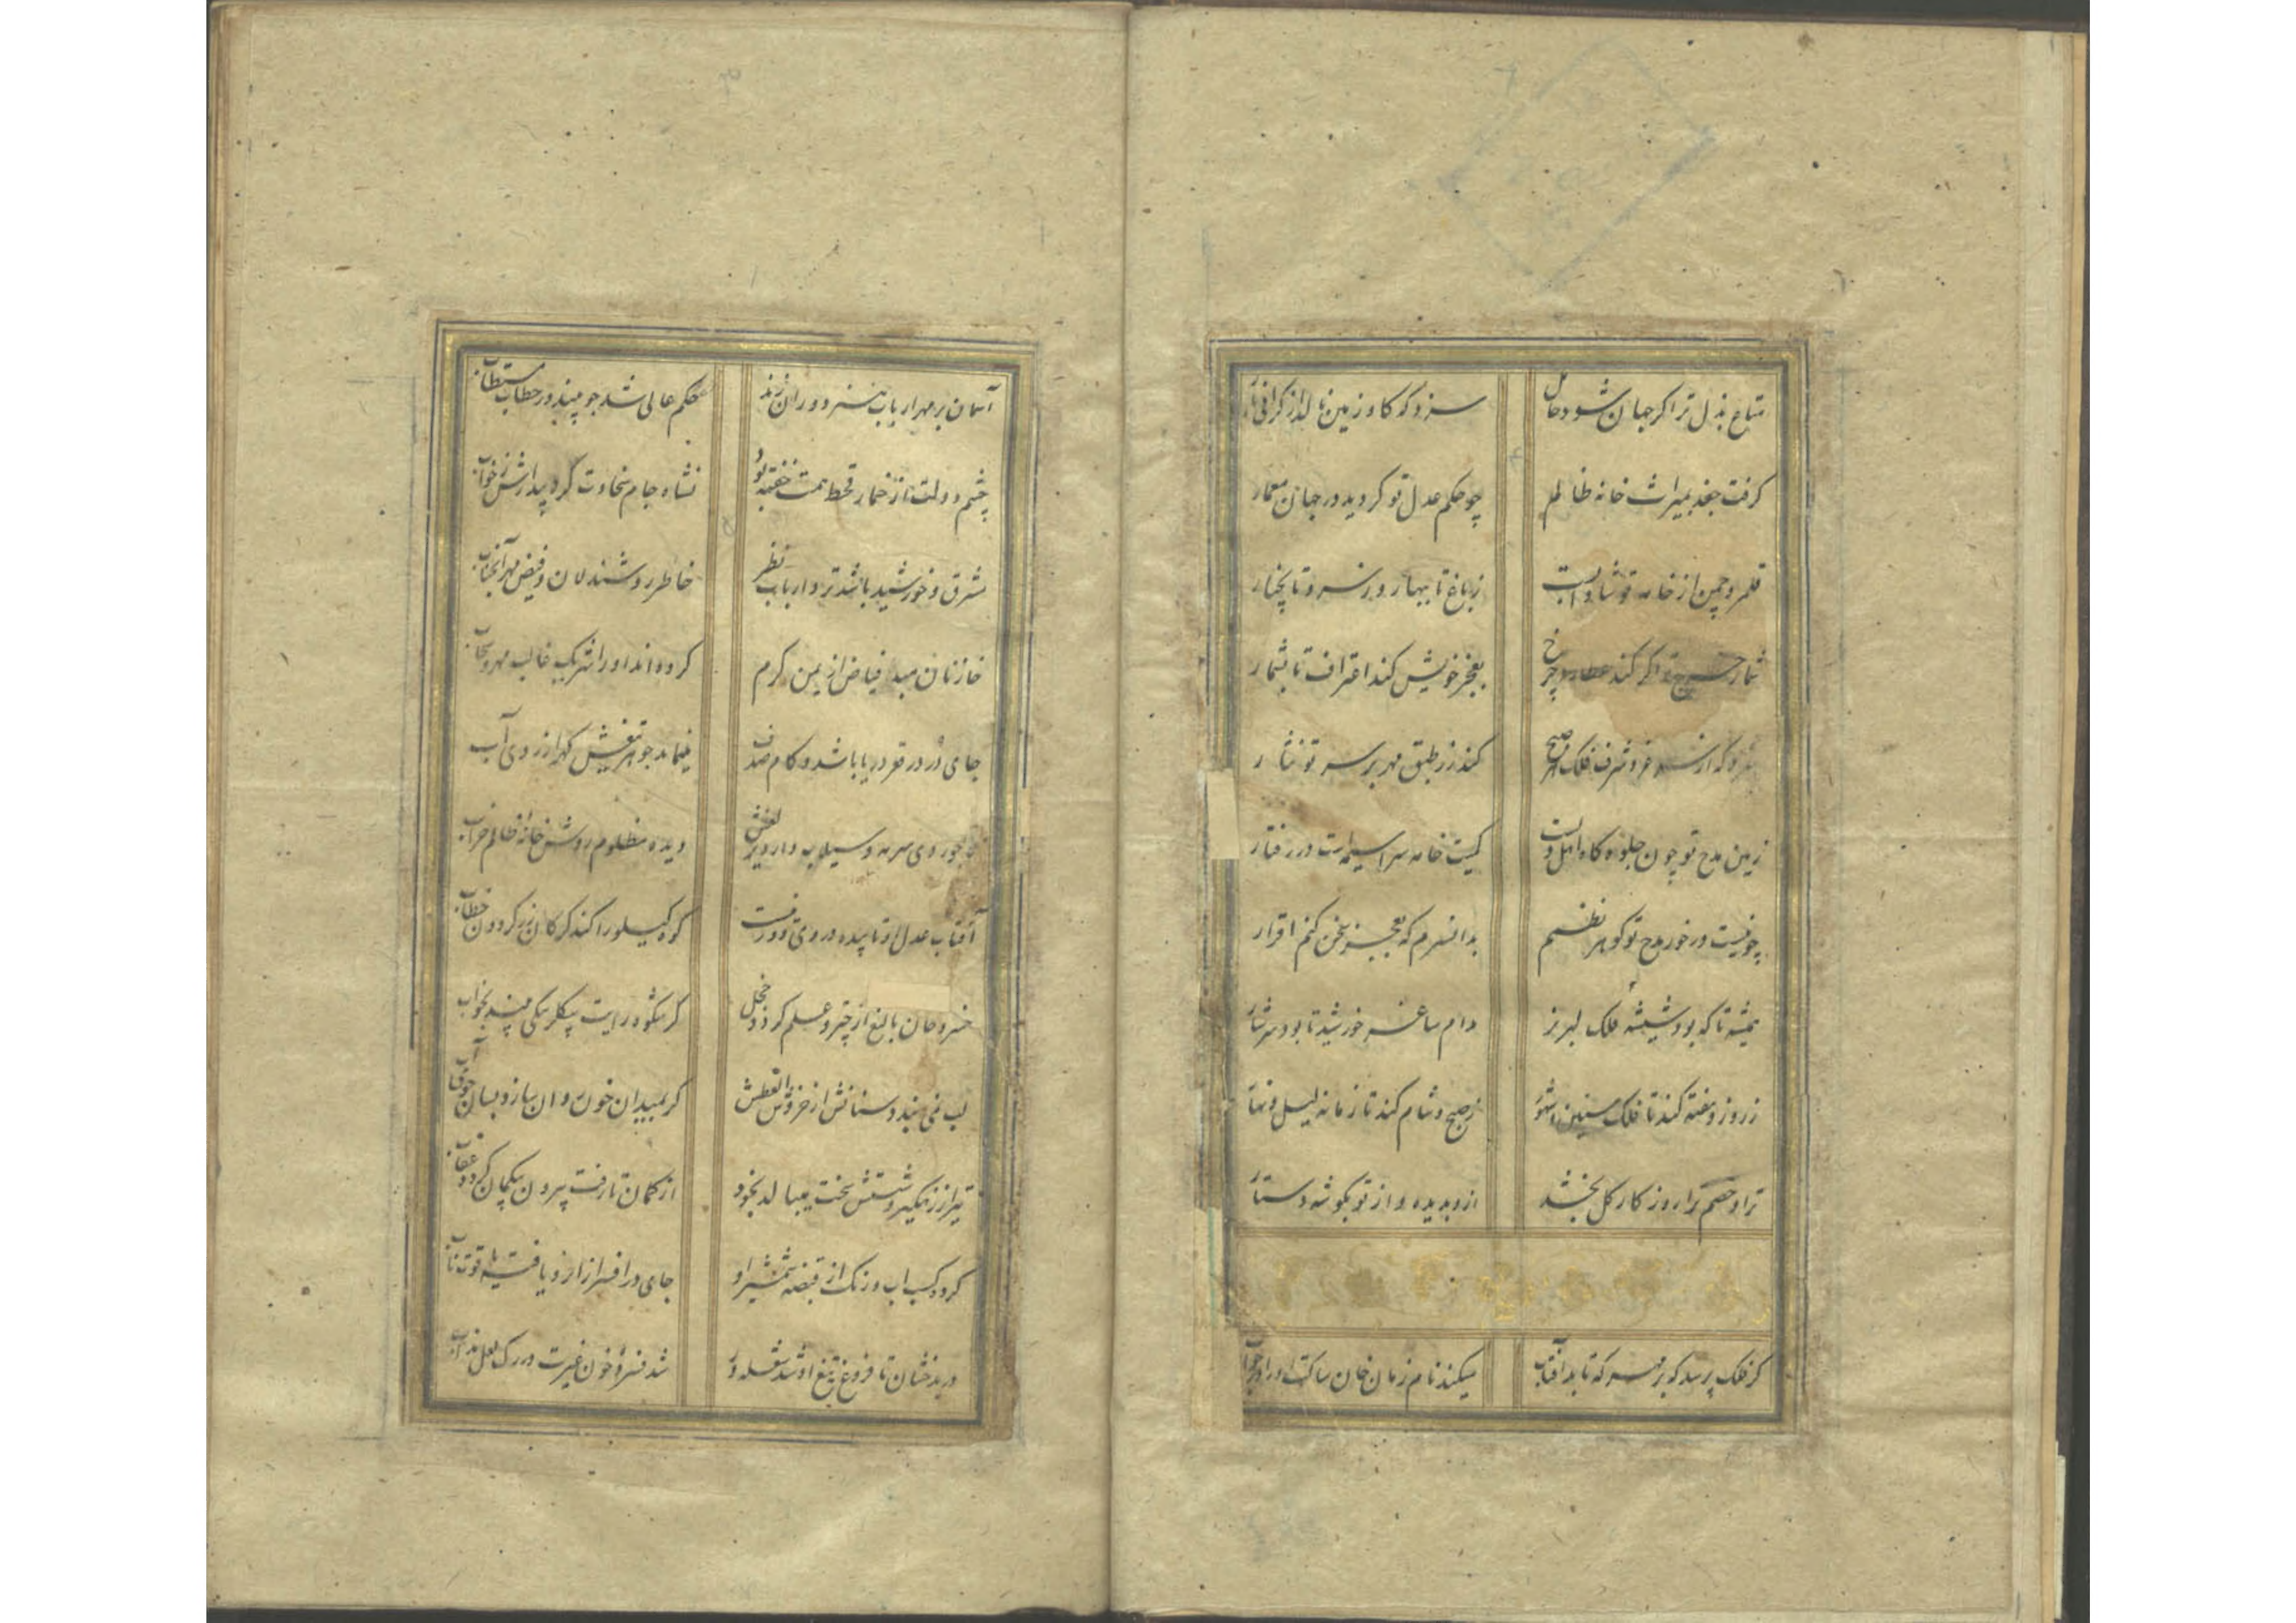 متاع بذل ترا گر جهان شود حامل سزد که گاو زمین نالد از گرانی بار
گرفت جغد بمیراث خانه ظالم چو حکم عدل تو گردید در جهان معمار
قلمرو چمن از خامه تو شادابست ز باغ تا ببهار و ز سرو تا بچنار
شمار ترا گر کند عطارد چرخ بعجز خویش کند اعتراف تا بشمار
که از فر و شرف فلک هر صبح کند زر طبق مهر بر سر تو نثار
زمین مدح تو چون جلوه گاه اهل کمیت خامه سراسیمه است در رفتار
چو نیست در خور مدح تو گوهر نظمم بدان سرم که بعجز سخن کنم اقرار
همیشه تا که بود شیشه فلک لبریز مدام ساغر خورشید تا بود سرشار
ز روز و هفته کند تا فلک سنین و شهور ز صبح و شام کند تا زمانه لیل و نهار
ترا و خصم ترا روزگار گل بخشد ازو بدیده و از تو بگوشه دستار
گر فلک پرسد که بر سر که تابد آفتاب میکند نام زمان خان ساکت او را در جواب
آسمان بر مهر ارباب هنر دوران زند حکم عالی شد چو بیند در خطاب مستطاب
چشم دولت از خمار قحط همت خفته بود نشاه جام سخاوت کرد بیدارش ز خواب
مشرق و خورشید باشد نزد ارباب نظر خاطر روشندلان و فیض مهر آنجناب
خازنان مبدا فیاض از یمن کرم کرده اند او را شریک غالب مهر و سحاب
جای در در قعر دریا باشد و کام صدف مینماید جوهر تیغش گهر از روی آب
روی سرمه و سیلاب دارد دیده مظلوم روشن خانه ظالم خراب
آفتاب عدل او تابیده در روی دورنیست کوه کیلو را کند گر کان زر گردون خطاب
خسرو خان بالیغ از چتر و علم گردد خجل گر شکوه رایت بیگلربیگی بیند بخواب
لب نمی بندد سنانش از خروش العطش گر بمیدان خون روان سازد بسان جوی آب
تیر از زهگیر و شستش سخت میبالد بخود از کمان تا رفت بیرون پیکان گردد عقاب
کرد کسب آب و رنگ از قبضه شمشیر او جای در افسر ازان رو یافته یاقوت ناب
در بدخشان تا فروغ تیغ او شد شعله ور شد فسرده خون غیرت در رگ لعل مذاب